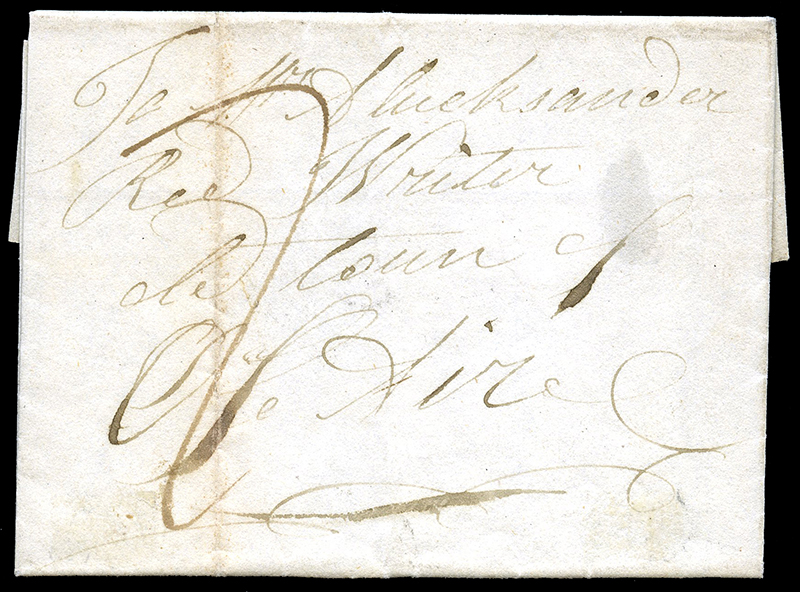 To Mr Alucksander
Reed Writer
in town of
Aire